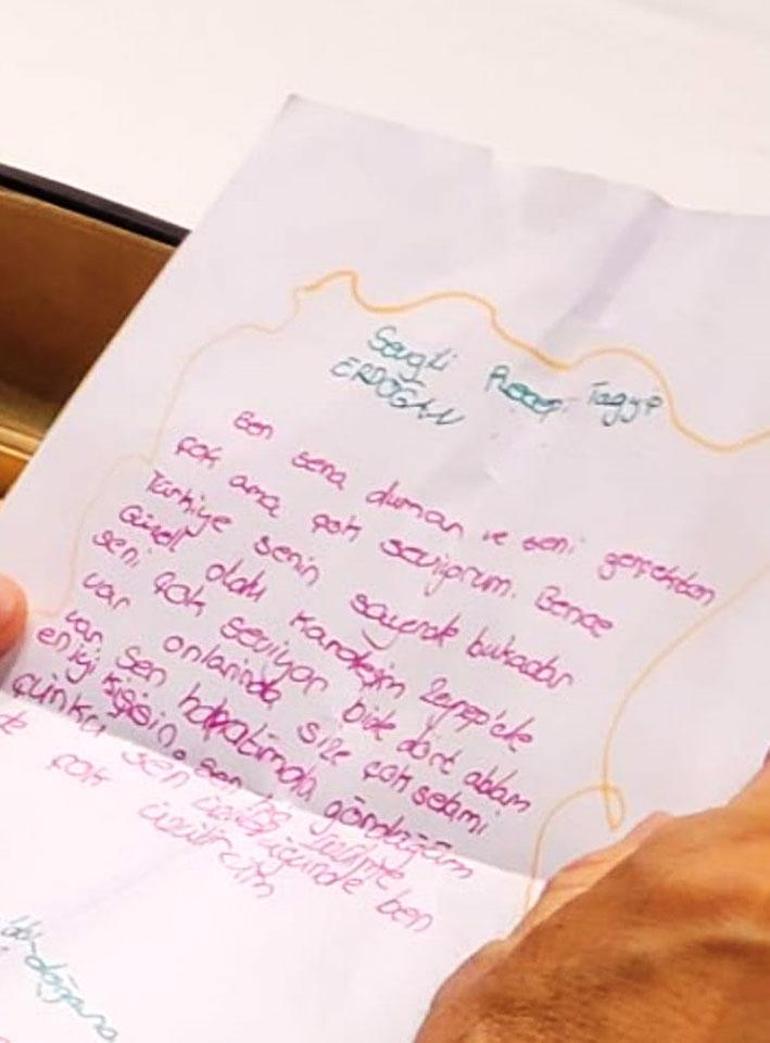 Sevgili Recep Tayyip
ERDOĞAN
Ben sena duman ve seni gerçekten
çok ama çok seviyorum. Bence
Türkiye senin sayende bukadar
Güzell oldu Kardeşim Zeynep'de
seni çok seviyor bide dört ablam
var onlarında size çok selamı
var sen hayatımda gördüğüm
en iyi kişisin. sen
çünkü sen
çok üzülürüm ben